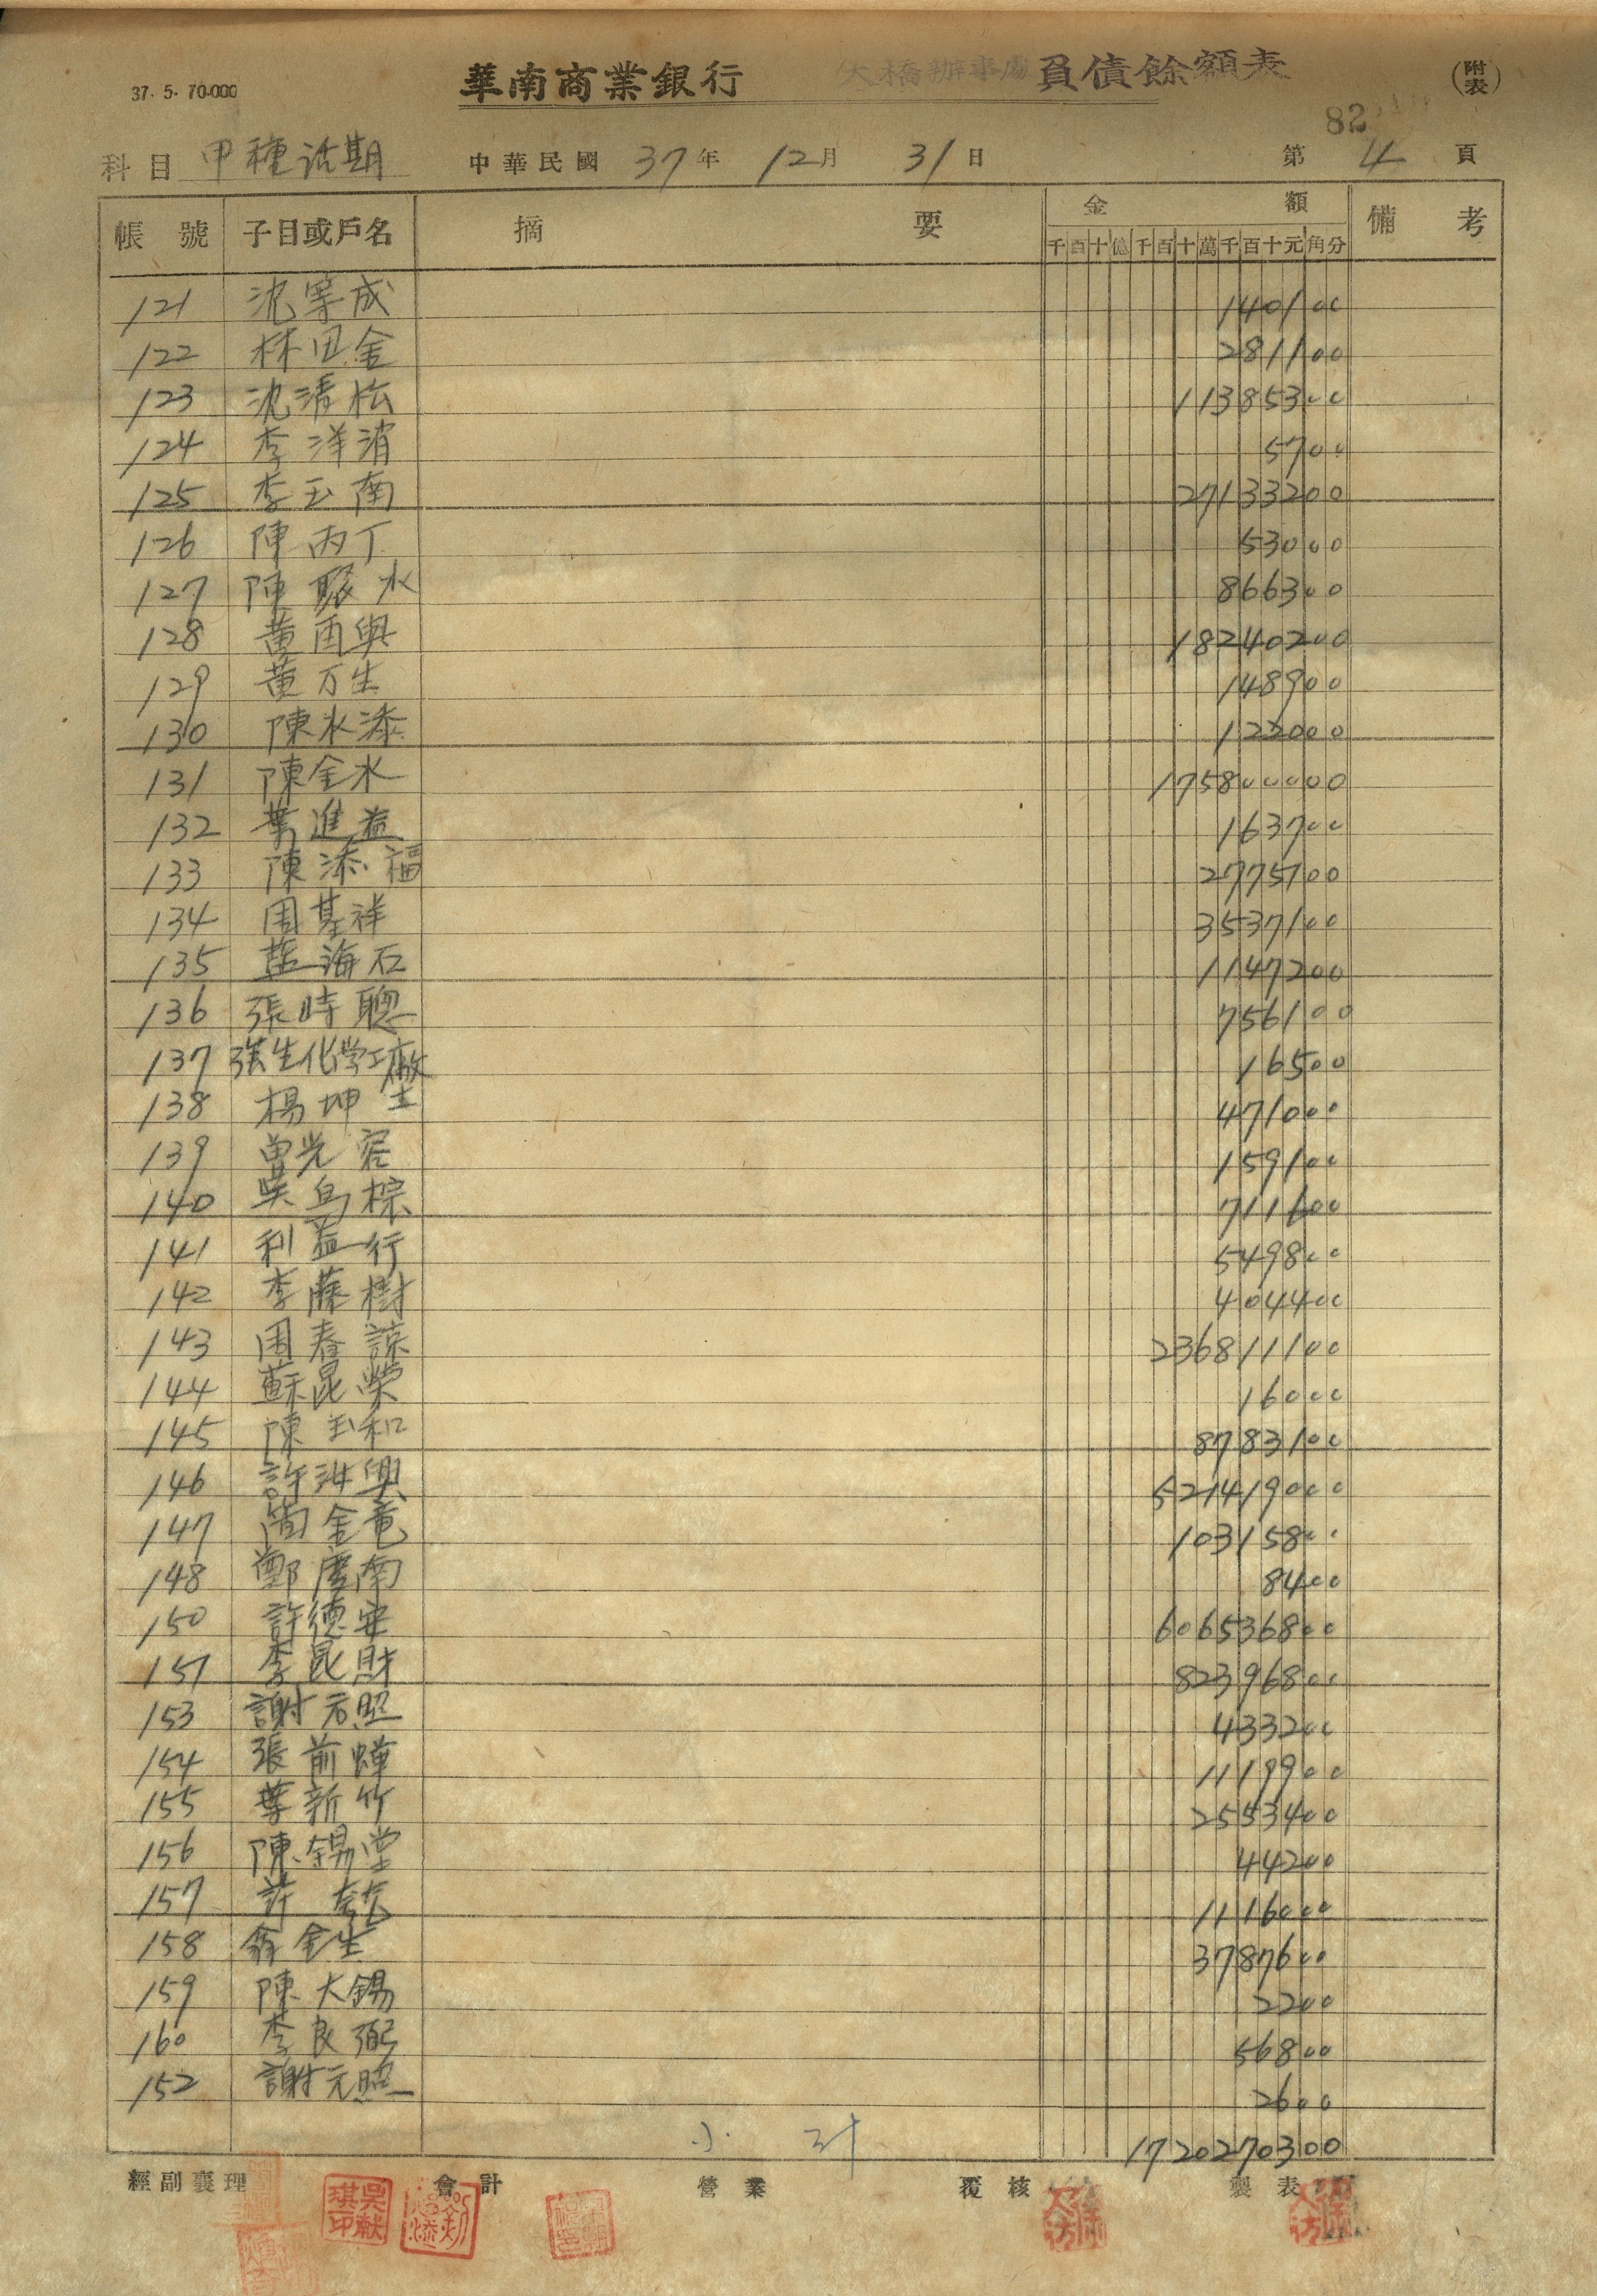 37. 5. 70.000
華南商業銀行 大橋辦事處 負債餘額表 (附表)
82
科目 甲種活期 中華民國 37年 12月 31日 第 4 頁
帳號 子目或戶名 摘要 金額 備考
千百十億千百十萬千百十元角分
121 沈 成 1401 00
122 林田金 2811 00
123 沈清松 113853 00
124 李洋 57 00
125 李玉南 271332 00
126 陳丙丁 530 00
127 陳聚水 8663 00
128 黃酉興 1824020 0
129 黃万生 1489 00
130 陳水添 1220 00
131 陳金水 1758000 00
132 葉進益 1637 00
133 陳添福 27757 00
134 周基祥 35371 00
135 藍海石 11472 00
136 張時聰 7561 00
137 強生化学工廠 165 00
138 楊坤生 4710 00
139 曾光容 1591 00
140 吳烏棕 7116 00
141 利益行 5498 00
142 李藤樹 4044 00
143 周春諒 2368111 00
144 蘇昆榮 160 00
145 陳玉和 87831 00
146 許 興 5214190 00
147 簡金竜 103158 00
148 鄭慶南 84 00
150 許德安 6065368 00
151 李昆財 823968 00
153 謝元照 4332 00
154 張前蟬 11199 00
155 葉新竹 25534 00
156 陳錫堂 442 00
157 許 11160 00
158 翁金生 37876 00
159 陳大錫 22 00
160 李良弼 568 00
152 謝元照 26 00
小計 17202703 00
經副襄理 會計 營業 覆核 製表
吳献琪印